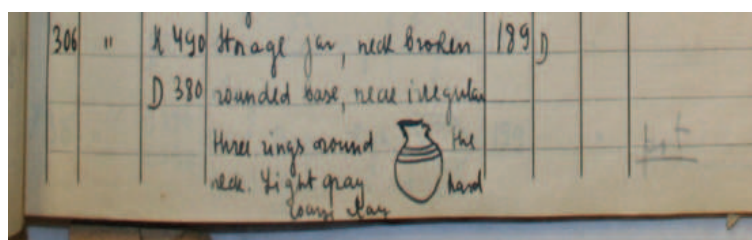 306 " H 490 Storage jar, neck broken 189 D
D 380 rounded base, neck irregular
three rings around the
neck. Light gray hard
coarse